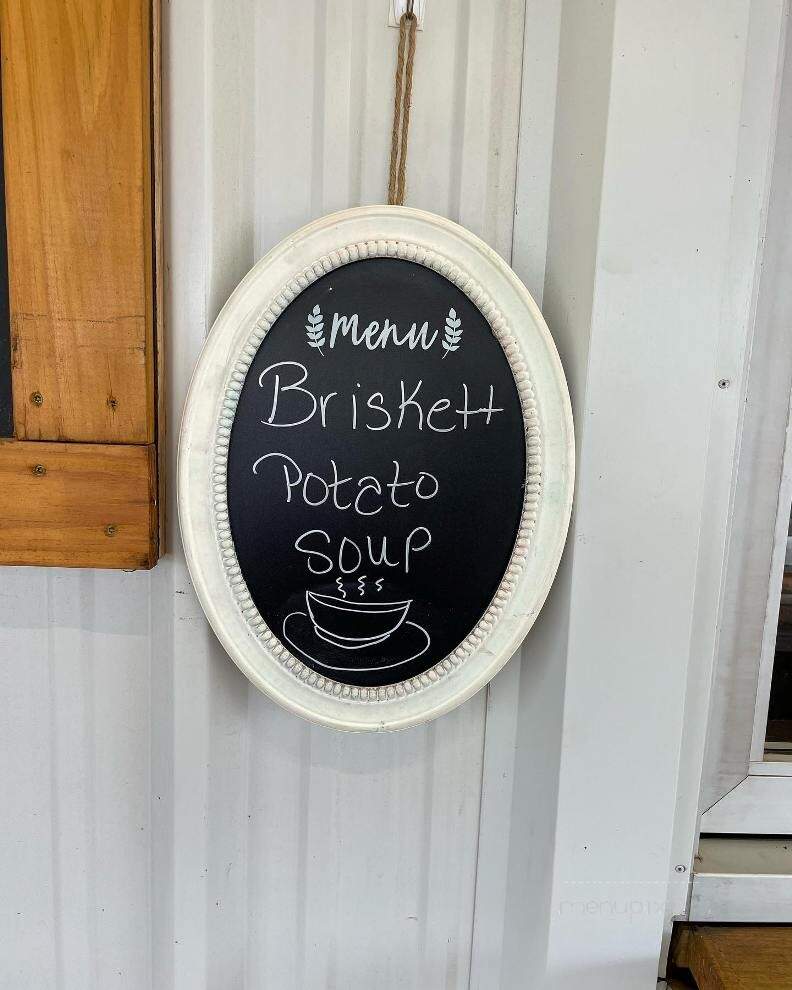 Menu
Briskett
Potato
Soup
menupix